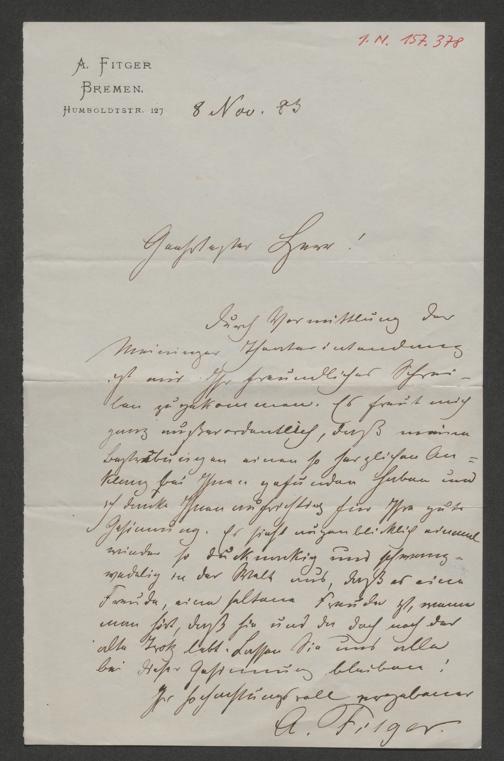 I. N. 157.378
A. FITGER
BREMEN.
HUMBOLDTSTR. 127
8 Nov. 83
Geehrtester Herr!
Durch Vermittlung der
Meininger Theaterintendanz
ist mir Ihr freundliches Schrei-
ben zugekommen. Es freut mich
ganz außerordentlich, daß meine
Bestrebungen einen so herzlichen An=
klang bei Ihnen gefunden haben und
ich danke Ihnen aufrichtig für Ihre gute
Gesinnung. Es sieht augenblicklich einmal
wieder so duckmäusig und schwanz-
wedelig in der Welt aus, daß es eine
Freude, eine seltene Freude ist, wenn
man hört, daß hie und da doch noch der
alte Trotz lebt. Lassen Sie uns alle
bei dieser Gesinnung bleiben!
Ihr hochachtungsvoll ergebener
A. Fitger.